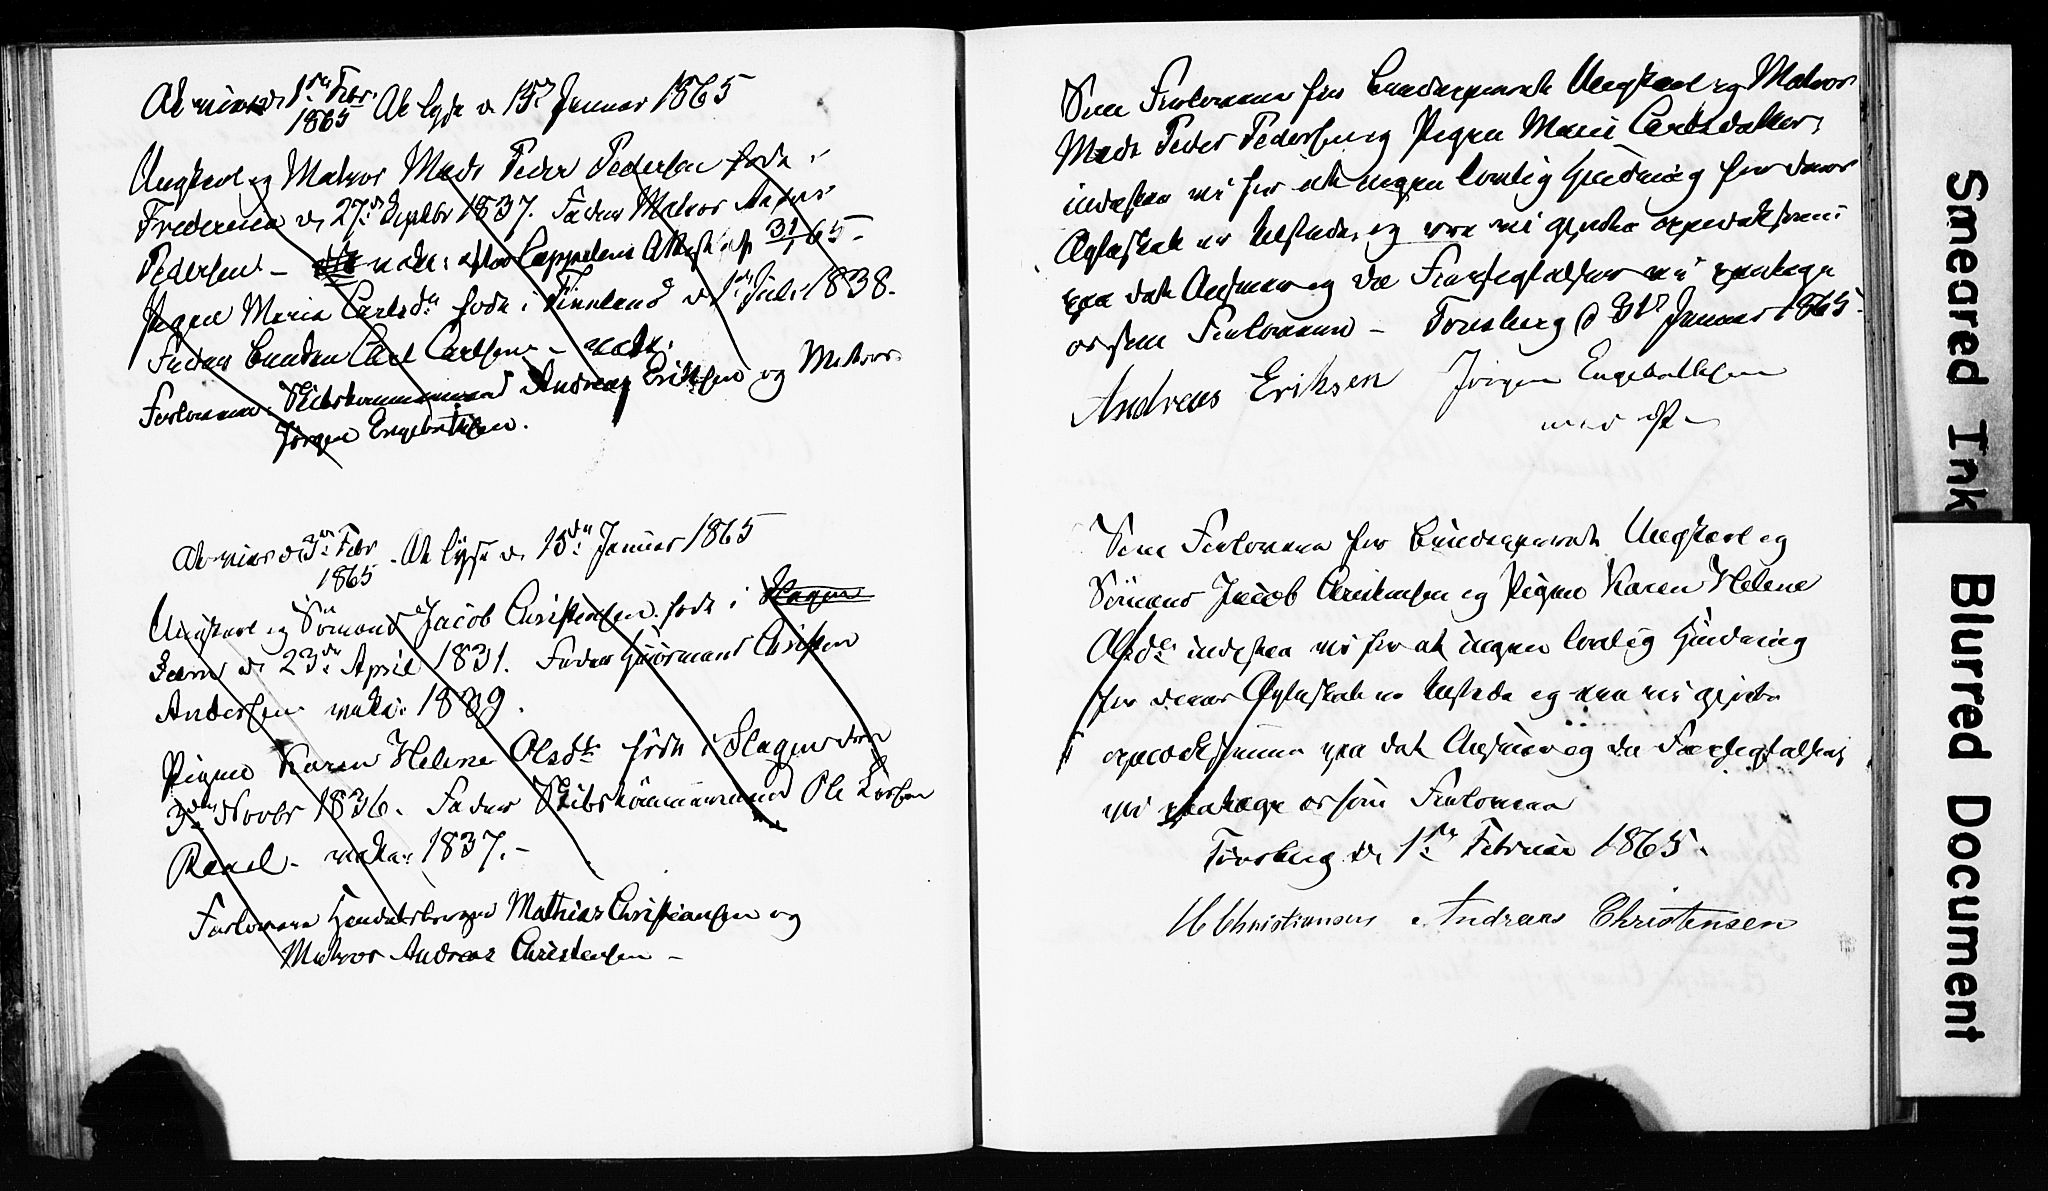 At vies d. 1ste Febr. 1865 At lyse d. 15de Januar 1865
Ungkarl og Matros Mads Peder Pedersen født i
Fredericia d. 27de Septbr 1837. Fader Matros
Pedersen - vakc: efter Cappelens Attest af 31/1 65 -
Pigen Maria Carlsdtr født i Finnland d. 1ste Juli 1838.
Fader Bonden Carl Carlsen - vakc:
Forlovere: Skibstømmermand Andreas Eriksen og Matros
Jörgen Engebretsen.
At vies d. 3die Febr 1865 - At lyse d. 15de Januar 1865
Ungkarl og Sömand Jacob Christensen født i Slagen
Sem d. 23de April 1831. Fader Christen
Andersen vakc: 1839.
Pigen Karen Helene Olsdtr født i Slagen den
3die Novbr 1836. Fader Skibstömmermand Ole Larsen
vakc: 1837. -
Forlovere Mathias Christiansen og
Matros Andreas Christensen -
Som Forlovere for Brudeparret Ungkarl og Matros
Mads Peder Pedersen og Pigen Marie Carlsdatter,
indestaa vi for at ingen lovlig Hindring for deres
Ægteskab er tilstede, og ere vi gjorte opmærksomme
paa det Ansvar og de Forpligtelser vi paatage
os som Forlovere - Tönsberg d 31te Januar 1865.
Andreas Eriksen Jörgen Engebrethsen
Som Forlovere for Brudeparret Ungkarl og
Sömand Jacob Christensen og Pigen Karen Helene
Olsdtr indestaa vi for at ingen lovlig Hindring
for deres Ægteskab er tilstede og ere vi gjorte
opmærksomme paa det Ansvar og de Forpligtelser
vi paatage os som Forlovere
Tönsberg d. 1ste Februar 1865.
M Christiansen Andreas Christensen
Smeared Ink
Blurred Document